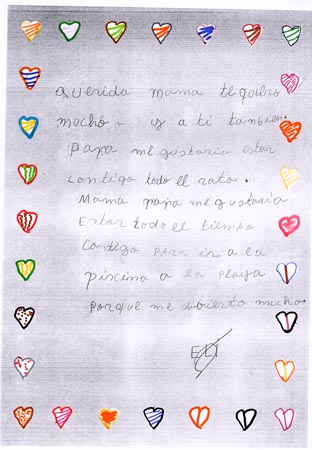 Querida mama te quiero
mucho - y a ti tambien.
papa me gustaria estar
contigo todo el rato.
Mama papa me gustaria
Estar todo el tiempo
contigo para ir a la
piscina a la playa
porque me divierto mucho.
ELI